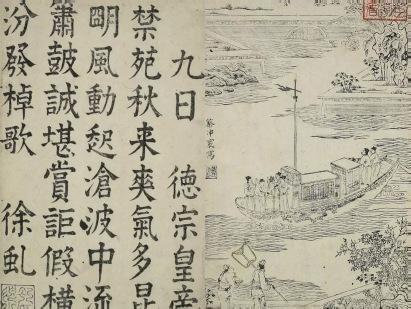 九日 德宗皇帝
禁苑秋来爽氣多昆
明風動起滄波中流
簫鼓誠堪賞詎假横
汾發棹歌 徐虬
蔡冲寰寫